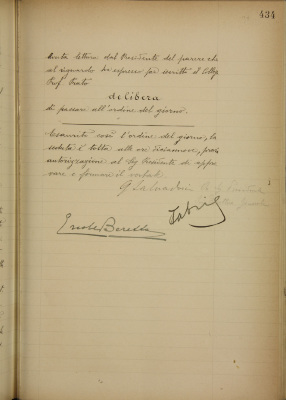 434
Avuta lettura dal Presidente del parere che
al riguardo ha espresso per iscritto il Collega
Prof. Prato
delibera
di passare all'ordine del giorno.
Esaurito così l'ordine del giorno, la
seduta è tolta alle ore diciannove, previa
autorizzazione al Sig. Presidente di appro
vare e firmare il verbale.
G Salvadori
Ernesto Beretta